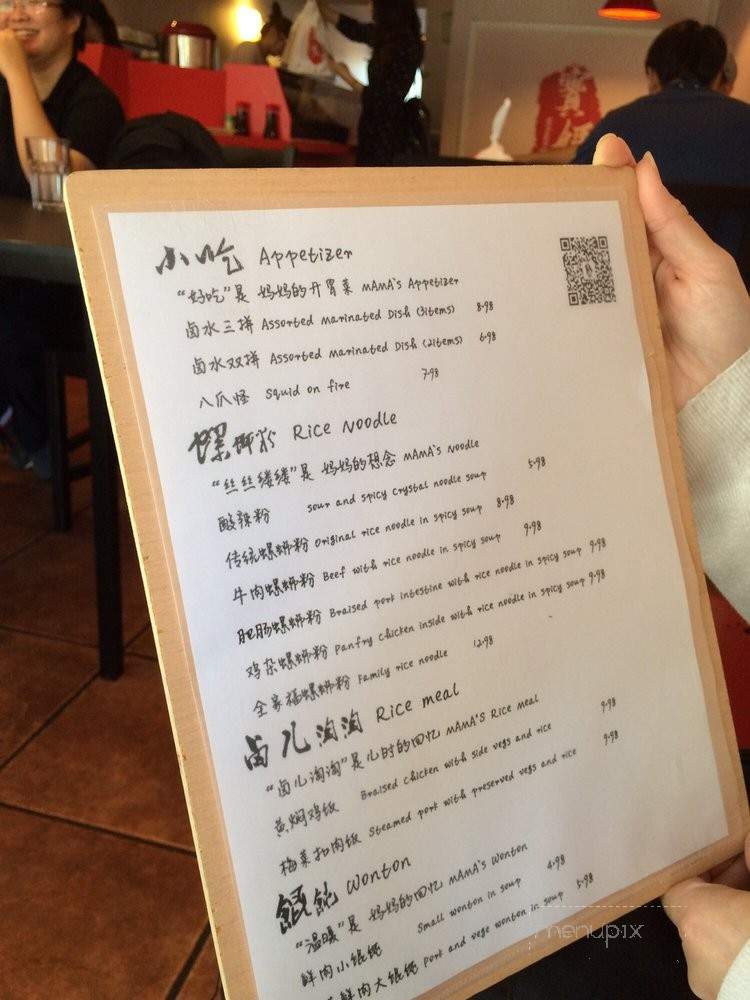 小吃 Appetizer
"好吃"是 妈妈的开胃菜 MAMA's Appetizer
卤水三拼 Assorted Marinated Dish (3items) 8.98
卤水双拼 Assorted Marinated Dish (2items) 6.98
八爪怪 Squid on fire 7.98
螺蛳粉 Rice Noodle
"丝丝缕缕"是 妈妈的想念 MAMA's Noodle
酸辣粉 sour and spicy crystal noodle soup 5.98
传统螺蛳粉 Original rice noodle in spicy soup 8.98
牛肉螺蛳粉 Beef with rice noodle in spicy soup 9.98
肥肠螺蛳粉 Braised pork intestine with rice noodle in spicy soup 9.98
鸡杂螺蛳粉 panfry chicken inside with rice noodle in spicy soup 9.98
全家福螺蛳粉 Family rice noodle 12.98
卤儿淘淘 Rice meal
"卤儿淘淘"是儿时的回忆 MAMA'S Rice meal
黄焖鸡饭 Braised chicken with side vegs and rice 9.98
梅菜扣肉饭 Steamed pork with preserved vegs and rice 9.98
馄饨 Wonton
"温暖"是 妈妈的回忆 MAMA's Wonton
鲜肉小馄饨 Small wonton in soup 4.98
鲜肉大馄饨 pork and vege wonton in soup 5.98
menupix